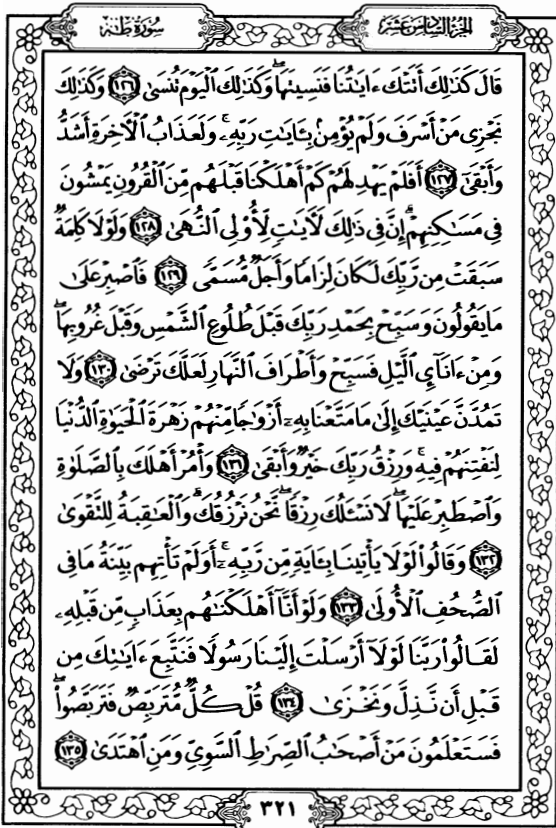 سُورَةُ طه
الجُزْءُ السَّادِسَ عَشَرَ
قَالَ كَذَٰلِكَ أَتَتْكَ ءَايَٰتُنَا فَنَسِيتَهَا ۖ وَكَذَٰلِكَ ٱلْيَوْمَ تُنسَىٰ ١٢٦ وَكَذَٰلِكَ
نَجْزِى مَنْ أَسْرَفَ وَلَمْ يُؤْمِنۢ بِـَٔايَٰتِ رَبِّهِۦ ۚ وَلَعَذَابُ ٱلْءَاخِرَةِ أَشَدُّ
وَأَبْقَىٰٓ ١٢٧ أَفَلَمْ يَهْدِ لَهُمْ كَمْ أَهْلَكْنَا قَبْلَهُم مِّنَ ٱلْقُرُونِ يَمْشُونَ
فِى مَسَٰكِنِهِمْ ۗ إِنَّ فِى ذَٰلِكَ لَءَايَٰتٍ لِّأُو۟لِى ٱلنُّهَىٰ ١٢٨ وَلَوْلَا كَلِمَةٌ
سَبَقَتْ مِن رَّبِّكَ لَكَانَ لِزَامًا وَأَجَلٌ مُّسَمًّى ١٢٩ فَٱصْبِرْ عَلَىٰ
مَا يَقُولُونَ وَسَبِّحْ بِحَمْدِ رَبِّكَ قَبْلَ طُلُوعِ ٱلشَّمْسِ وَقَبْلَ غُرُوبِهَا ۖ
وَمِنْ ءَانَآئِ ٱلَّيْلِ فَسَبِّحْ وَأَطْرَافَ ٱلنَّهَارِ لَعَلَّكَ تَرْضَىٰ ١٣٠ وَلَا
تَمُدَّنَّ عَيْنَيْكَ إِلَىٰ مَا مَتَّعْنَا بِهِۦٓ أَزْوَٰجًا مِّنْهُمْ زَهْرَةَ ٱلْحَيَوٰةِ ٱلدُّنْيَا
لِنَفْتِنَهُمْ فِيهِ ۚ وَرِزْقُ رَبِّكَ خَيْرٌ وَأَبْقَىٰ ١٣١ وَأْمُرْ أَهْلَكَ بِٱلصَّلَوٰةِ
وَٱصْطَبِرْ عَلَيْهَا ۖ لَا نَسْـَٔلُكَ رِزْقًا ۖ نَّحْنُ نَرْزُقُكَ ۗ وَٱلْعَٰقِبَةُ لِلتَّقْوَىٰ
١٣٢ وَقَالُوا۟ لَوْلَا يَأْتِينَا بِـَٔايَةٍ مِّن رَّبِّهِۦٓ ۚ أَوَلَمْ تَأْتِهِم بَيِّنَةُ مَا فِى
ٱلصُّحُفِ ٱلْأُولَىٰ ١٣٣ وَلَوْ أَنَّآ أَهْلَكْنَٰهُم بِعَذَابٍ مِّن قَبْلِهِۦ
لَقَالُوا۟ رَبَّنَا لَوْلَآ أَرْسَلْتَ إِلَيْنَا رَسُولًا فَنَتَّبِعَ ءَايَٰتِكَ مِن
قَبْلِ أَن نَّذِلَّ وَنَخْزَىٰ ١٣٤ قُلْ كُلٌّ مُّتَرَبِّصٌ فَتَرَبَّصُوا۟ ۖ
فَسَتَعْلَمُونَ مَنْ أَصْحَٰبُ ٱلصِّرَٰطِ ٱلسَّوِىِّ وَمَنِ ٱهْتَدَىٰ ١٣٥
٣٢١